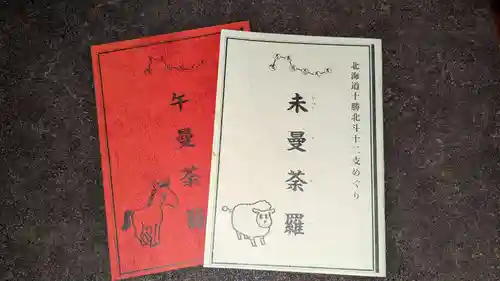 北海道十勝北斗十二支めぐり
未曼荼羅
午曼荼